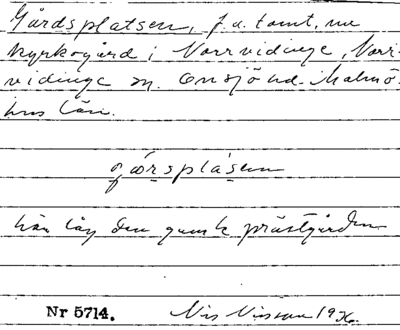 Gårdsplatsen, f.d. tomt, nu
kyrkogård i Norrvidinge, Norr-
vidinge sn. Onsjö hd. Malmö-
hus län.
gǻrsplásen
här låg den gamla prästgården
Nr 5714. Nils Nilsson 1936.